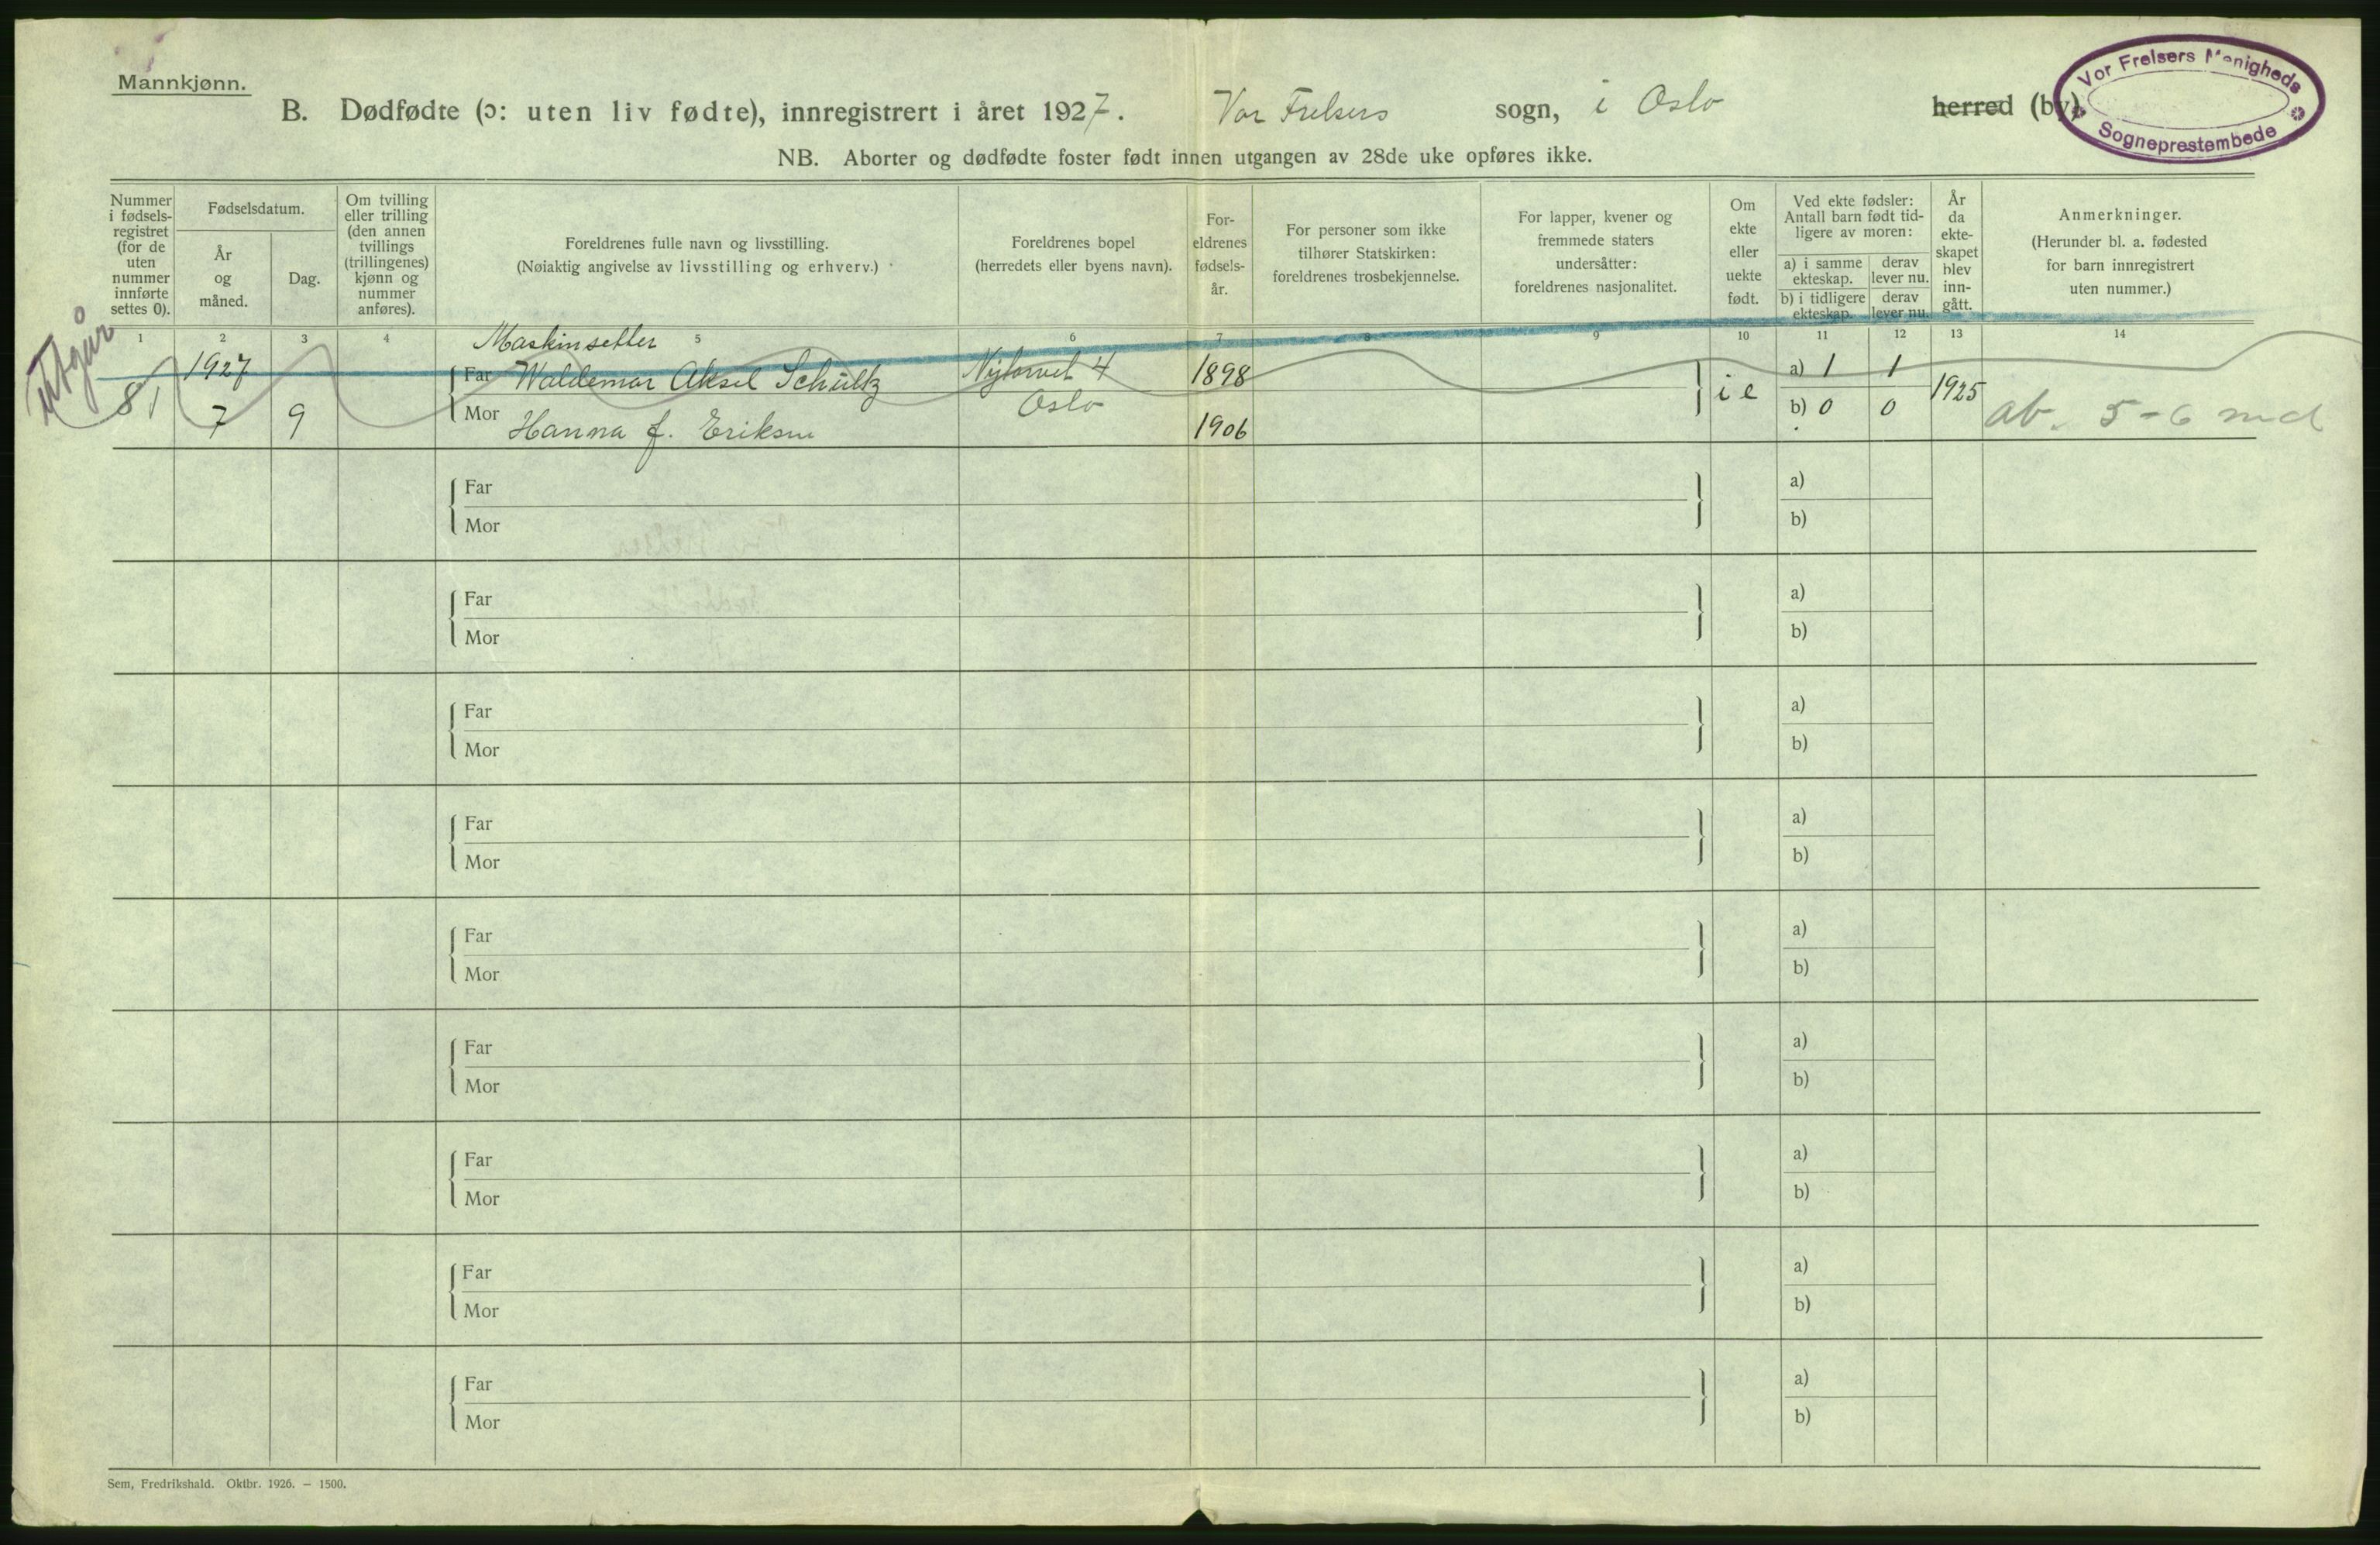 Mannkjønn.
B. Dødfødte (ɔ: uten liv fødte), innregistrert i året 1927. Vor Frelsers sogn, i Oslo herred (by).
Vor Frelsers Menigheds
Sogneprestembede
NB. Aborter og dødfødte foster født innen utgangen av 28de uke opføres ikke.
Nummer i fødsels-registret (for de uten nummer innførte settes 0).
Fødselsdatum.
År og måned.
Dag.
Om tvilling eller trilling (den annen tvillings (trillingenes) kjønn og nummer anføres).
Foreldrenes fulle navn og livsstilling.
(Nøiaktig angivelse av livsstilling og erhverv.)
Foreldrenes bopel
(herredets eller byens navn).
For-eldrenes fødsels-år.
For personer som ikke tilhører Statskirken: foreldrenes trosbekjennelse.
For lapper, kvener og fremmede staters undersåtter: foreldrenes nasjonalitet.
Om ekte eller uekte født.
Ved ekte fødsler: Antall barn født tid-ligere av moren:
a) i samme ekteskap.
derav lever nu.
b) i tidligere ekteskap.
derav lever nu.
År da ekte-skapet blev inn-gått.
Anmerkninger.
(Herunder bl. a. fødested for barn innregistrert uten nummer.)
1 2 3 4 5 6 7 8 9 10 11 12 13 14
utgår
Maskinsetter
81 1927 Far Waldemar Aksel Schultz Nytorvet 4 1898 i e a) 1 1 1925
7 9 Mor Hanna f. Eriksen Oslo 1906 b) 0 0 ab. 5-6 md
Far a)
Mor b)
Far a)
Mor b)
Far a)
Mor b)
Far a)
Mor b)
Far a)
Mor b)
Far a)
Mor b)
Far a)
Mor b)
Far a)
Mor b)
Far a)
Mor b)
Sem, Fredrikshald. Oktbr. 1926. – 1500.